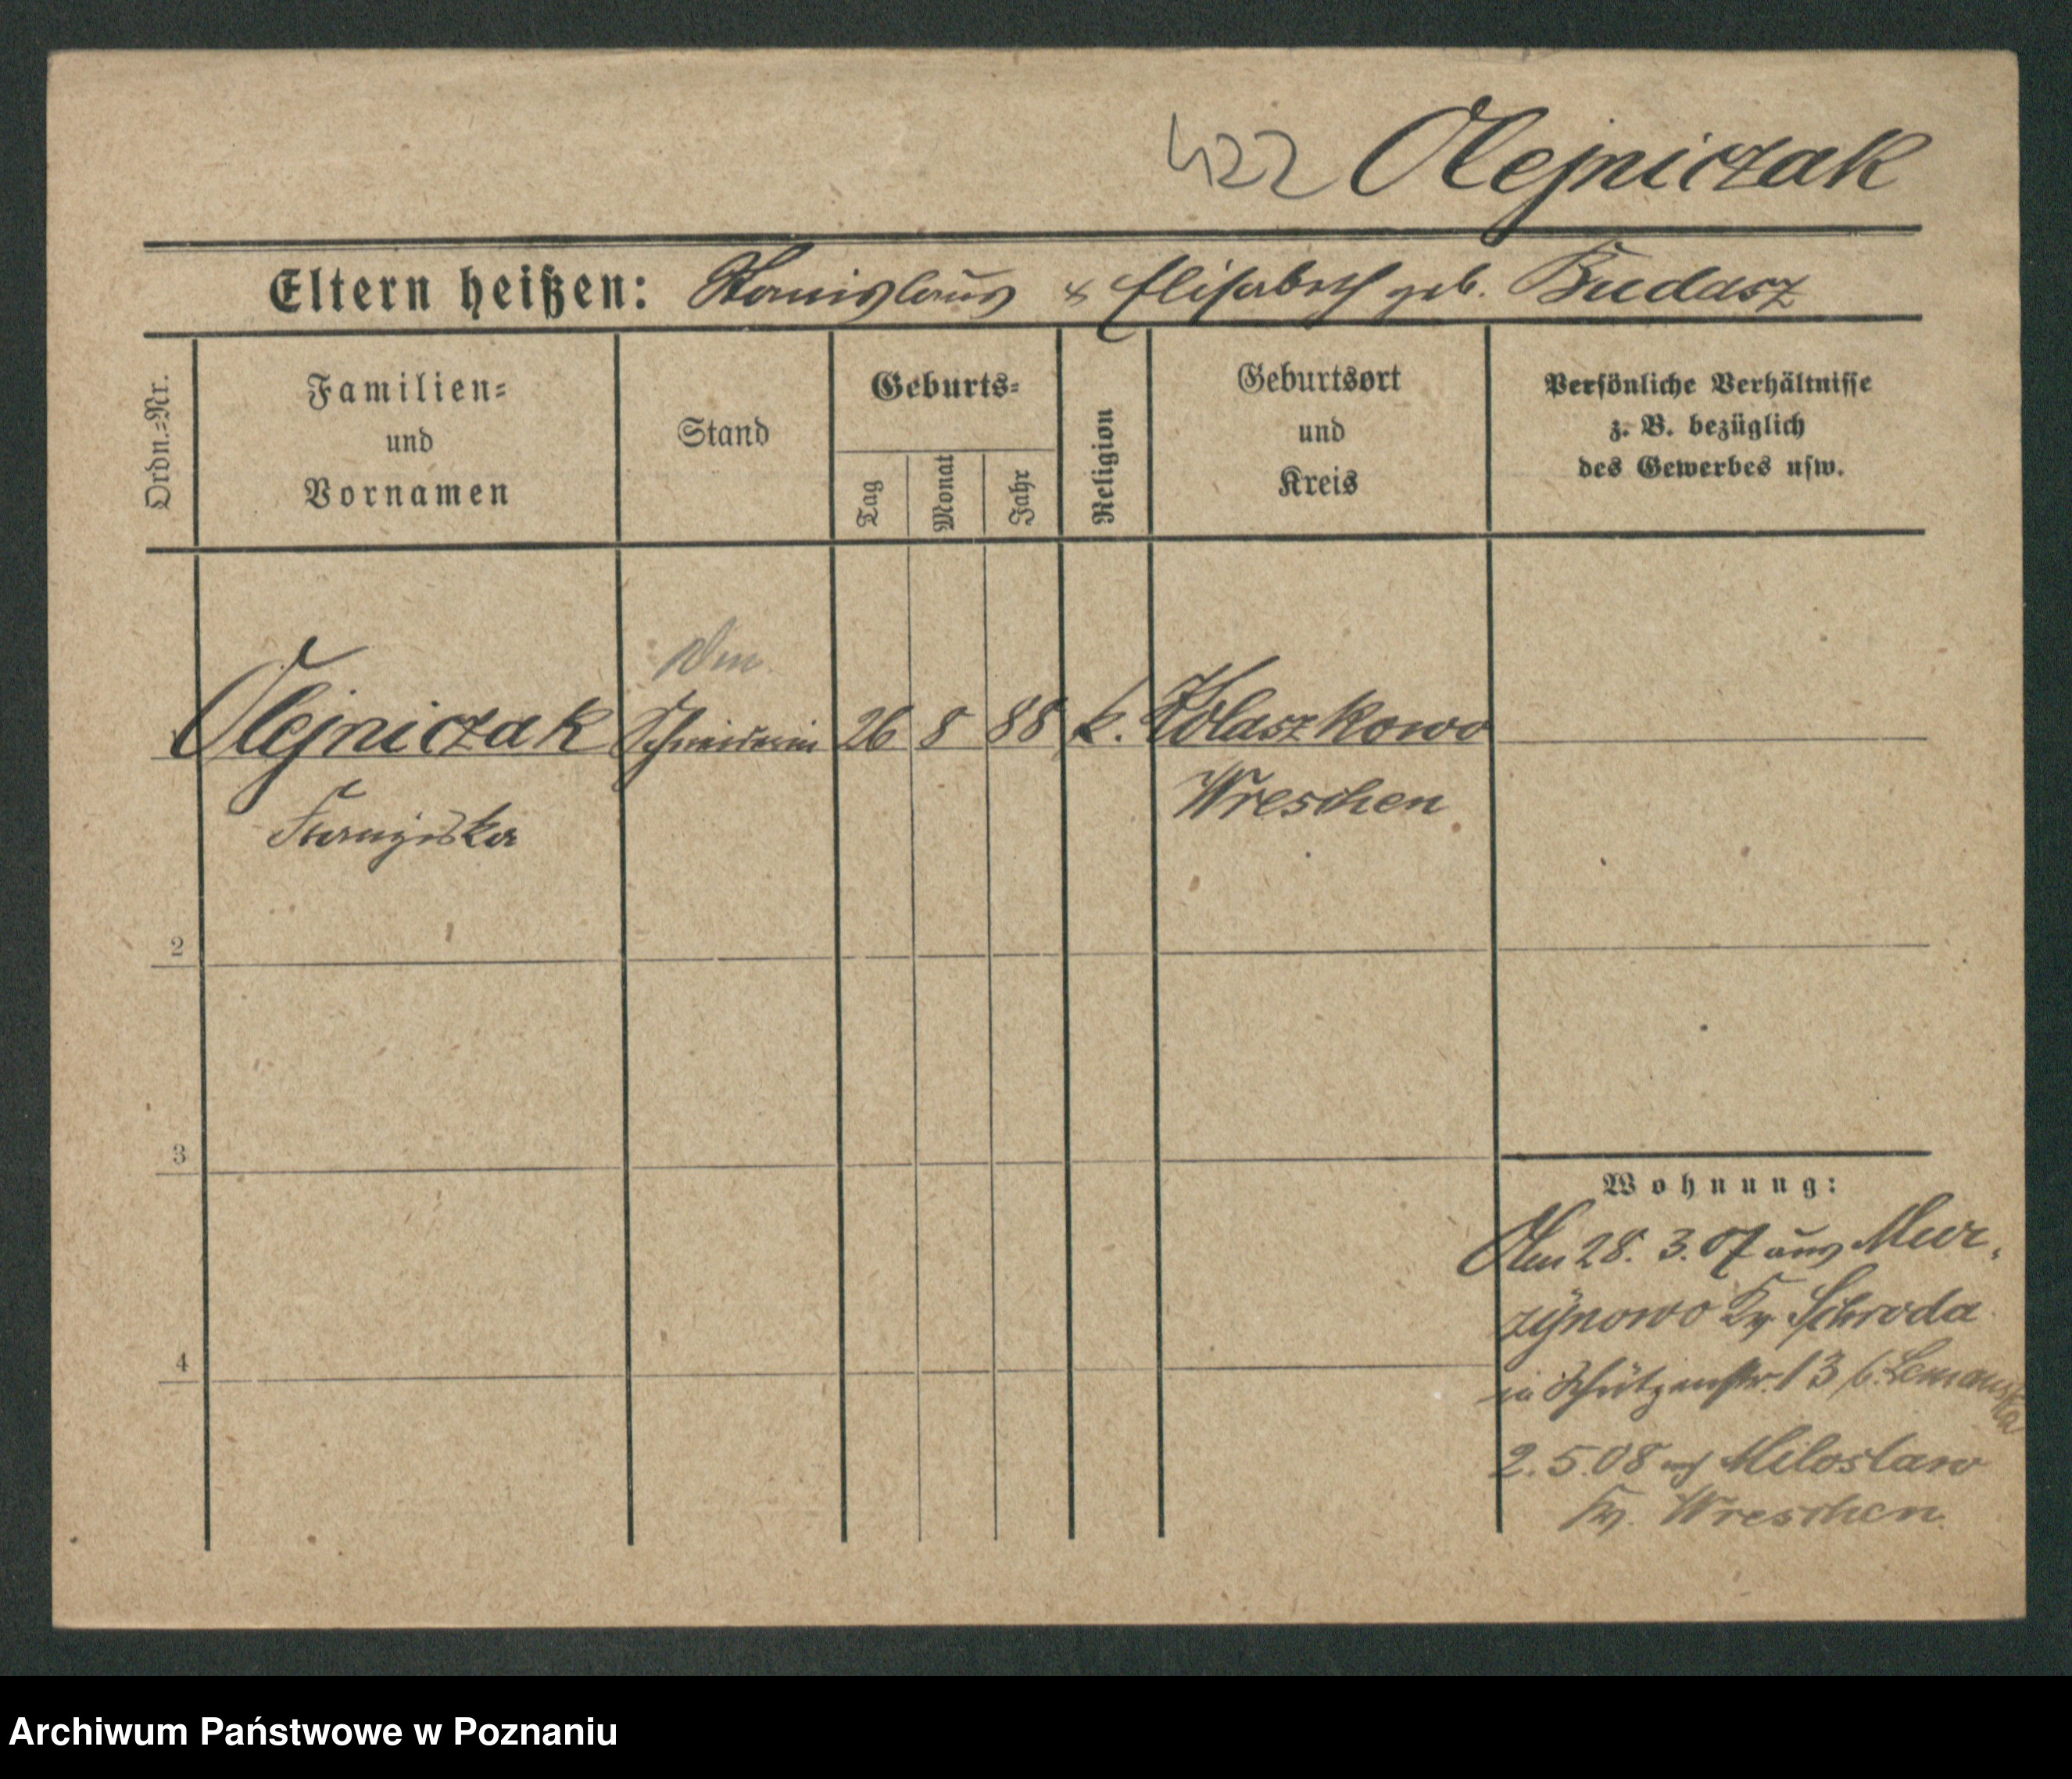 422 Olejniczak
Eltern heißen: Stanislaus & Elisabeth geb. Budasz
Ordn.-Nr.
Familien-
und
Vornamen
Stand
Geburts-
Tag
Monat
Jahr
Religion
Geburtsort
und
Kreis
Persönliche Verhältnisse
z. B. bezüglich
des Gewerbes usw.
Olejniczak Schneiderin 26 8 88 k. Kolaszkowo
Franziska
Wreschen
2
3
4
Wohnung:
Am 28. 3. 07 aus Mur-
zynowo Kr. Schroda
in Schützenstr. 13 b. Lemanska
2. 5. 08 nach Miloslaw
Kr. Wreschen
Archiwum Państwowe w Poznaniu